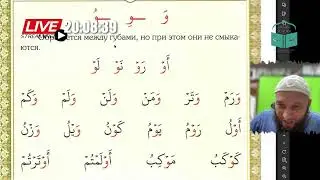 LIVE 20:08:39
وَ وِ وُ
между губами, но при этом они не смыка-
ются.
أَوْ رَوْ نَوْ لَوْ
وَرَمْ وَتَرْ وَمَنْ وَلَنْ وَلَمْ وَكَمْ
أَوَّلُ رَوْمُ يَوْمُ كَوْنُ وَيْلُ وَزْنُ
كَوْكَبُ مَوْكِبُ أَوْلَمْتُمْ أَوْتَرْتُمْ